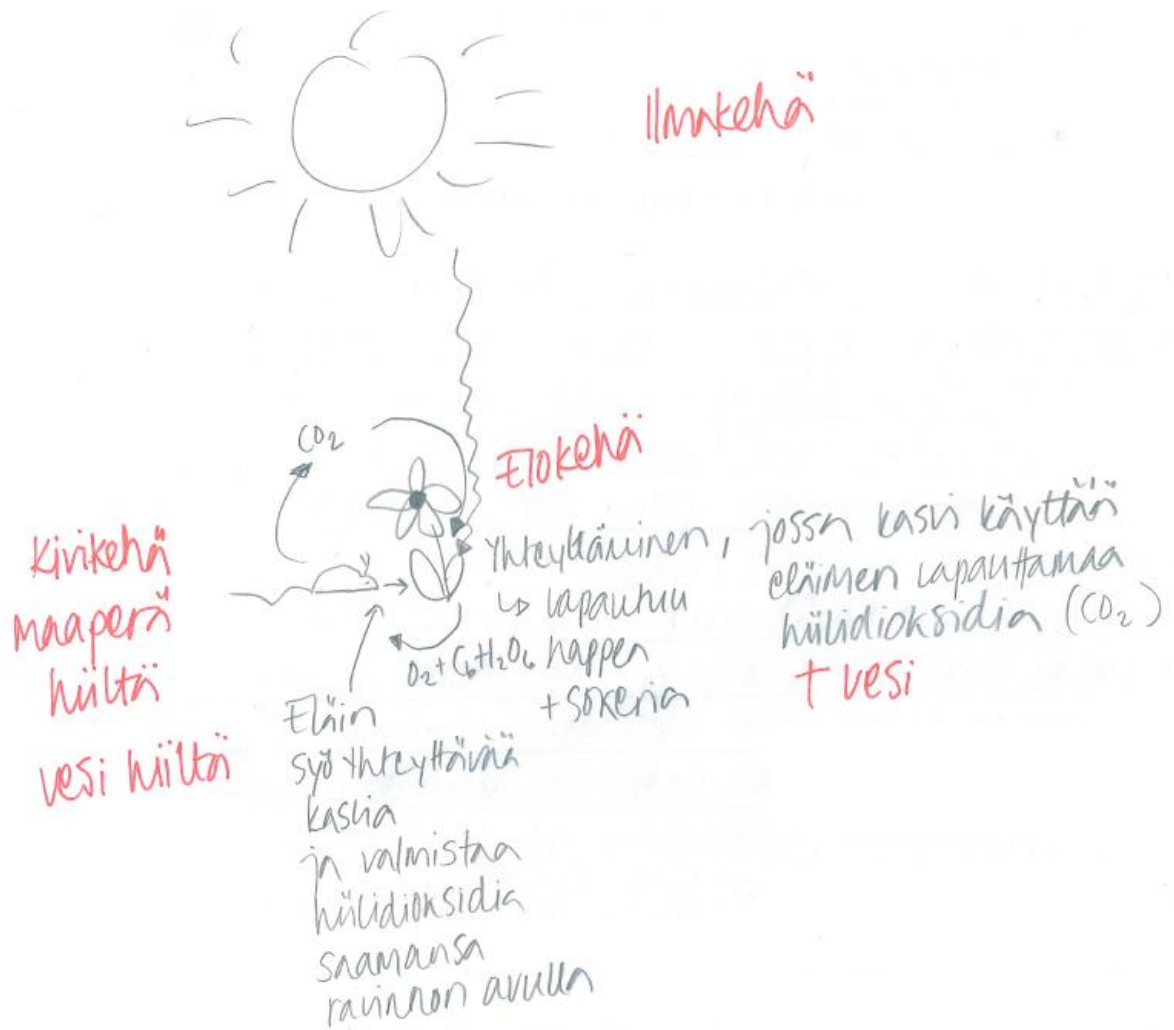 Ilmakehä
CO2
Elokehä
Kivikehä
maaperä
hiiltä
vesi hiiltä
Yhteyttäminen, jossa kasvi käyttää
↳ vapautuu eläimen vapauttamaa
happea hiilidioksidia (CO2)
+ sokeria + vesi
O2 + C6H2O6
Eläin
syö yhteyttävää
kasvia
ja valmistaa
hiilidioksidia
saamansa
ravinnon avulla